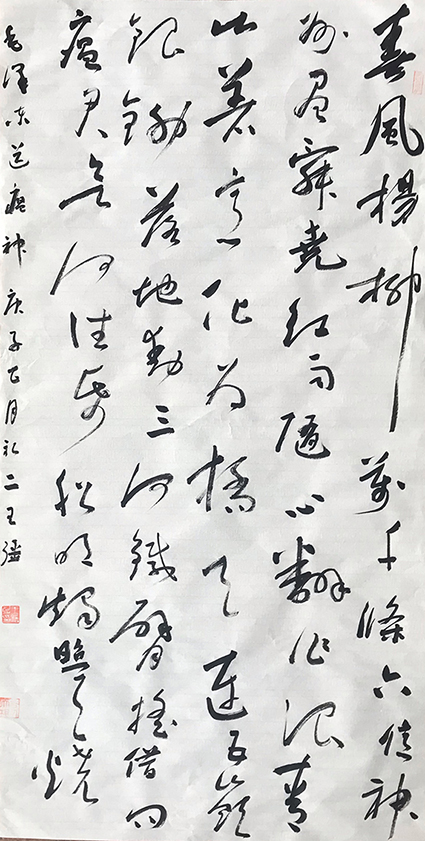 春風楊柳萬千條六億神
州尽舜堯红雨随心翻作浪青
山着意化为橋天連五嶺
銀鋤落地動三河鐵臂搖借问
瘟君欲何往纸船明燭照天燒
毛澤东送瘟神庚子七月初二王